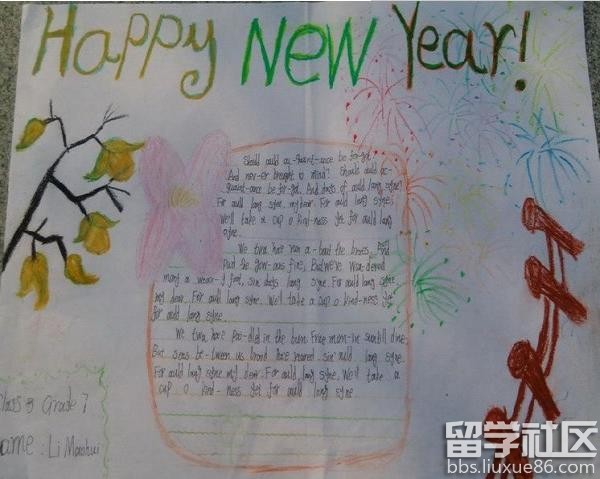 Happy New Year!
Should auld ac-quaint-ance be for-got
And nev-er brought to mind? Should auld ac-
quaint-ance be for-got, And days of auld lang syne?
For auld lang syne, my dear. For auld lang syne;
We'll take a cup o kind-ness yet for auld lang
syne.
We twa have run a-bout the braes, And
pu'd the gow-ans fine, But we've wan-dered
mony a wear-y feet, sin days lang syne. For auld lang syne,
my dear. For auld lang syne. We'll take a cup o kind-ness yet
for auld lang syne.
We twa have pai-dled in the burn Frae morn-in sun till dine
But seas be-tween us braid have roared sin' auld lang syne.
For auld lang syne my dear. For auld lang syne. We'll take a
cup o kind-ness yet for auld lang syne
Class 3 Grade 7
ame: Li
留学社区
bbs.liuxue86.com